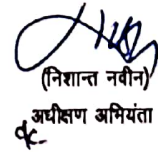 (निशान्त नवीन)
अधीक्षण अभियंता